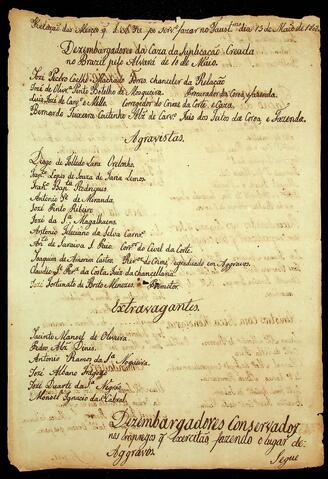 Relação das Merces q. S.A.R. fes no Faust.mo dia 13 de Maio de 180
Dezembargadores da Caza da Suplicação Creada
no Brazil pelo Alvará de 10 de Maio.
Joze Pedro Coelho Machado Torres chanceler da Relação
Joze de Oliv.ra Pinto Botelho de Mosqueira Procurador da Coroa, e fazenda.
Luis Joze de Carv.o e Mello Corregedor do Crime da Corte, e Caza.
Bernardo Teixeira Coutinho Alz' de Carv.o Juis dos Feitos da Coroa, e Fazenda.
Agravistas.
Diogo de Tolledo Lara Ordonhes
Lopes de Souza de Faria Lemos
Bap.ta Rodrigues
Antonio de Miranda
Joze Pinto Ribeiro
Joze da S.a Magalhaens
Antonio Feliciano da Silva Carn.ro
de Saraiva do Civel da Corte.
Joaquim de Amorim Castro do Crime, e graduado em Aggravos
Claudio Joze da Costa Juis da chancellaria
Joze Fortunato de Brito Menezes Promotor
Extravagantes.
Jacinto Manoel de Oliveira
Pedro Alz' Dinis
Antonio Ramos da S.a Nogueira
Joze Albano Fragozo
Joze Duarte da S.a Negrão
Manoel Ignacio da S.a Cabral
Dezembargadores Conservados
nos empregos q' exercitão, fazendo o lugar de
Aggravos.
Segue